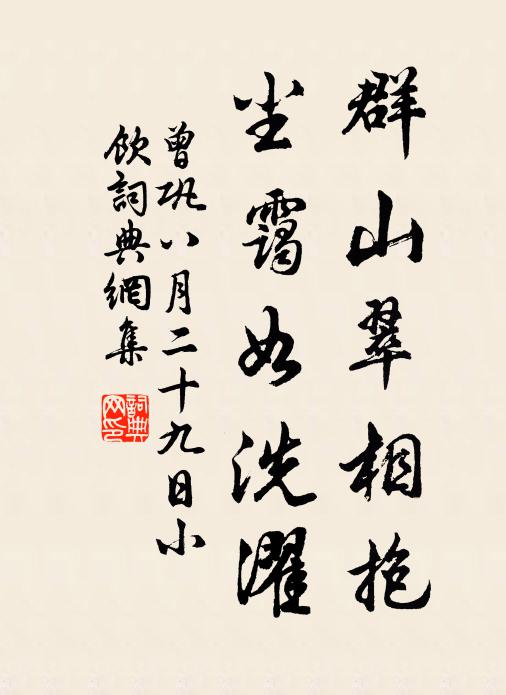 群山翠相抱
尘霭如洗濯
曾巩八月二十九日小
飲詞典網集
詞典
网印